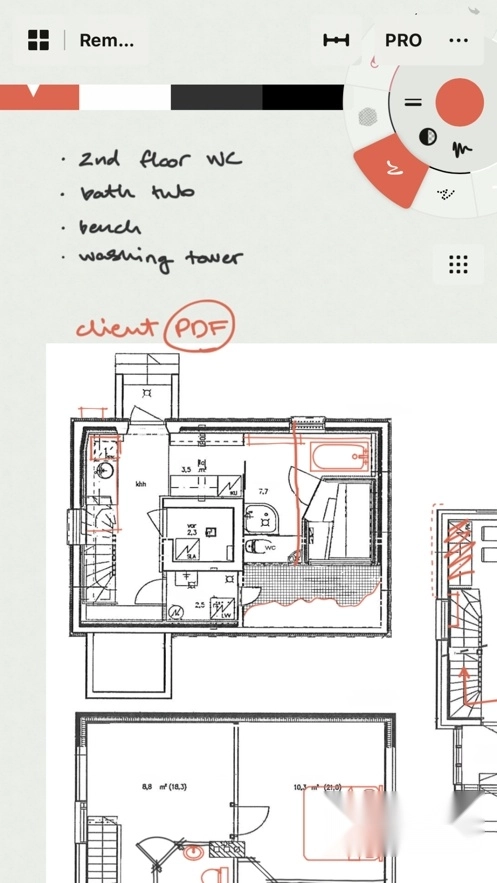 Rem...
PRO
• 2nd floor WC
• bath tub
• bench
• washing tower
client PDF
khh
3,5 m²
7,7
var
2,3
WC
2,5
8,8 m² (18,3)
10,3 m² (21,0)